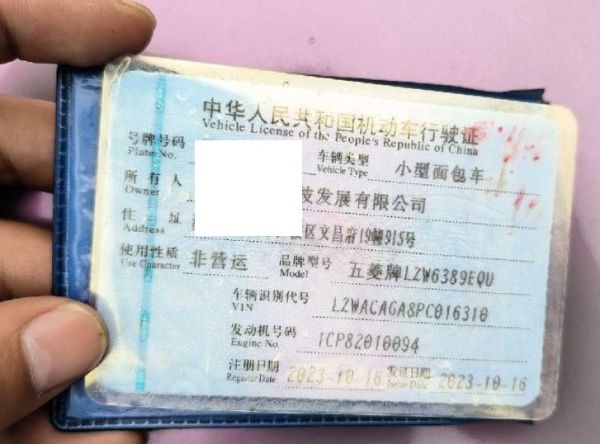 中华人民共和国机动车行驶证
Vehicle License of the People's Republic of China
号牌号码 车辆类型 小型面包车
Plate No. Vehicle Type
所有人 技发展有限公司
Owner
住址 区文昌府19幢915号
Address
使用性质 非营运 品牌型号 五菱牌LZW6389EQU
Use Character Model
车辆识别代号 LZWACAGA8PC016310
VIN
发动机号码 1CP82010094
Engine No.
注册日期 2023-10-16 发证日期 2023-10-16
Register Date Issue Date